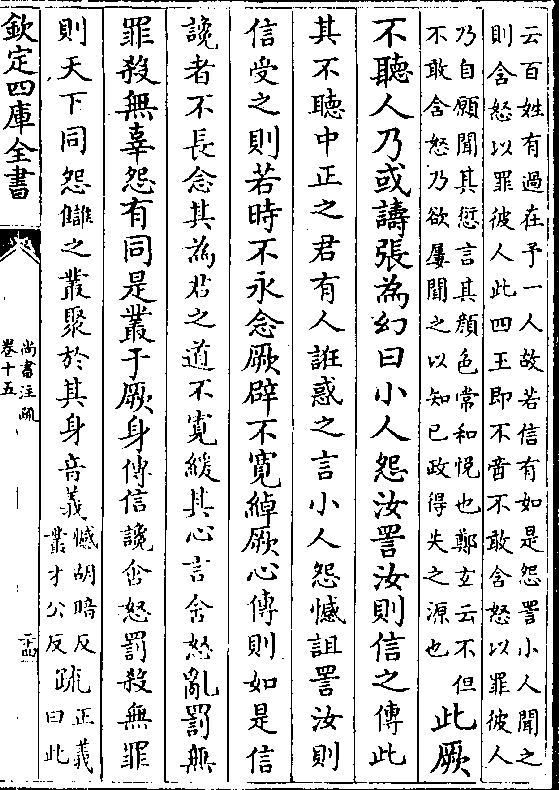 云百姓有過在予一人故若信有如是怨詈小人聞之
則含怒以罪彼人此四王即不啻不敢含怒以罪彼人
乃自願聞其愆言其顏色常和悅也鄭玄云不但
不敢含怒乃欲屢聞之以知己政得失之源也
此厥
不聽人乃或譸張為幻曰小人怨汝詈汝則信之傳此
其不聽中正之君有人誑惑之言小人怨憾詛詈汝則
信受之則若時不永念厥辟不寛綽厥心傳則如是信
讒者不長念其為君之道不寛緩其心言含怒亂罰無
罪殺無辜怨有同是叢于厥身傳信讒含怒罰殺無罪
則天下同怨讎之叢聚於其身音義
憾胡暗反
叢才公反
疏正義
曰此
欽定四庫全書
尚書注疏
卷十五
二十四